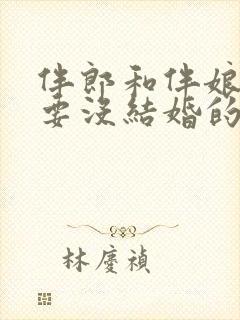 伴郎和伴娘
要沒結婚的
林慶禎